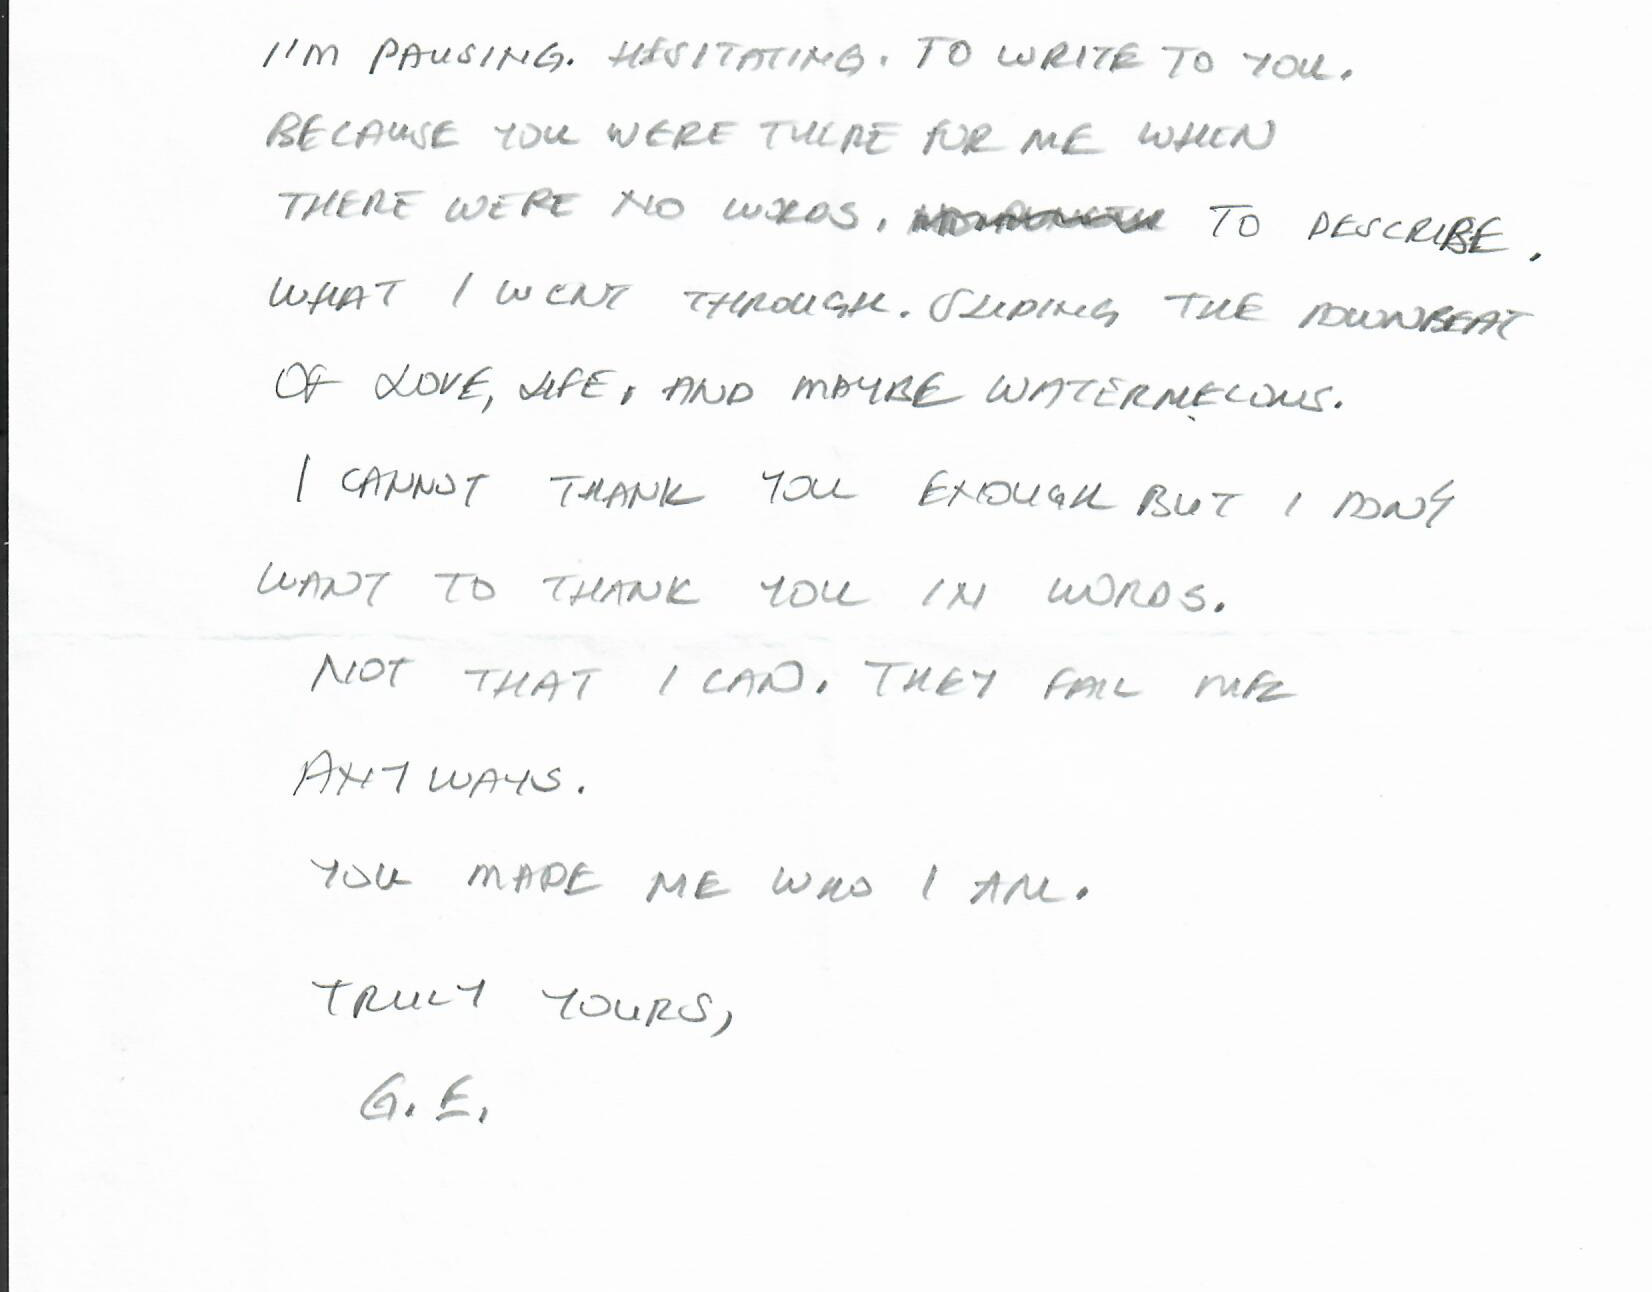 I'M PAUSING. HESITATING. TO WRITE TO YOU.
BECAUSE YOU WERE THERE FOR ME WHEN
THERE WERE NO WORDS. TO DESCRIBE.
WHAT I WENT THROUGH. THE DOWNBEAT
OF LOVE, LIFE, AND MAYBE WATERMELONS.
I CANNOT THANK YOU ENOUGH BUT I DON'T
WANT TO THANK YOU IN WORDS.
NOT THAT I CAN. THEY FAIL ME
ANYWAYS.
YOU MADE ME WHO I AM.
TRULY YOURS,
G.E.